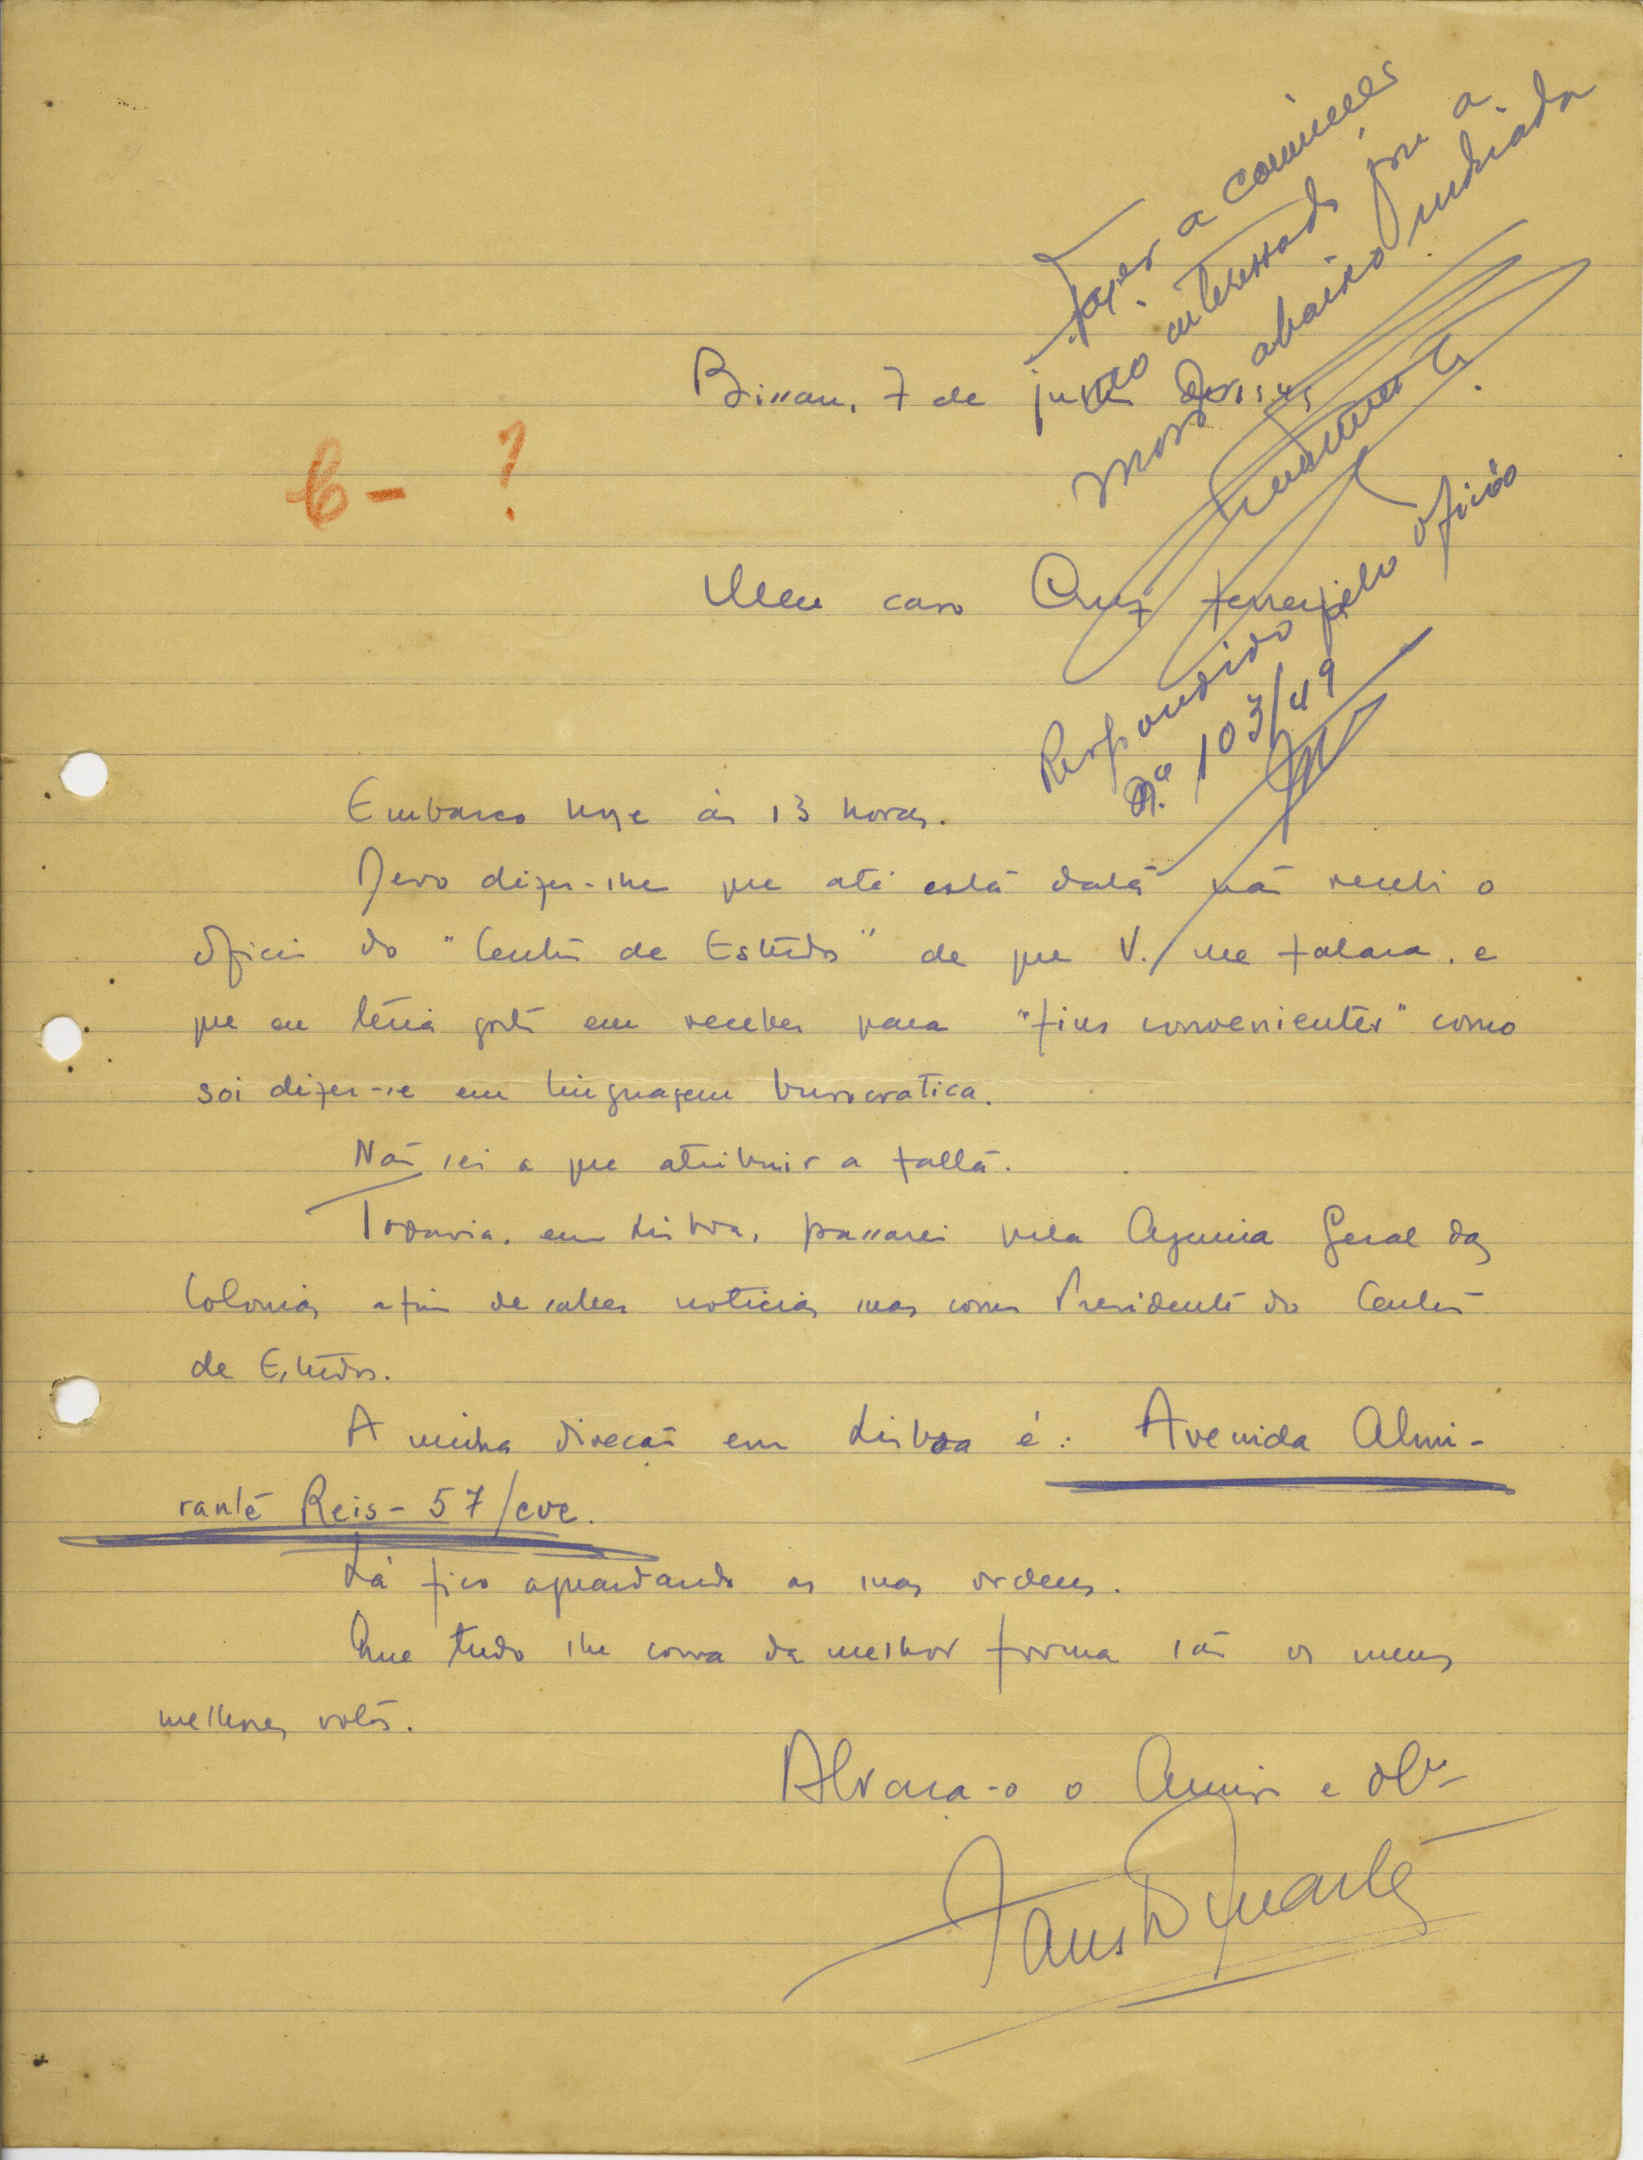 Fazer a comunica
interessado para a
morada abaixo indicada
Bissau, 7 de
6 - ?
Meu caro Cruz Ferreira
Respondido pelo oficio
n.º 103/49
Embarco hoje ás 13 horas.
Devo dizer-lhe que até esta data não recebi o
oficio do "Centro de Estudos" de que V. me falara, e
que eu teria gosto em receber para "fins convenientes" como
soi dizer-se em linguagem burocratica.
Não sei a que atribuir a falta.
Todavia, em Lisboa, passarei pela Agencia Geral das
Colonias afim de saber noticias suas como Presidente do Centro
de Estudos.
A minha direcção em Lisboa é: Avenida Almi-
rante Reis - 57/cve.
Lá fico aguardando as suas ordens.
Que tudo lhe corra da melhor forma são os meus
melhores votos.
Abraça-o o Amigo e obº
Fausto Duarte